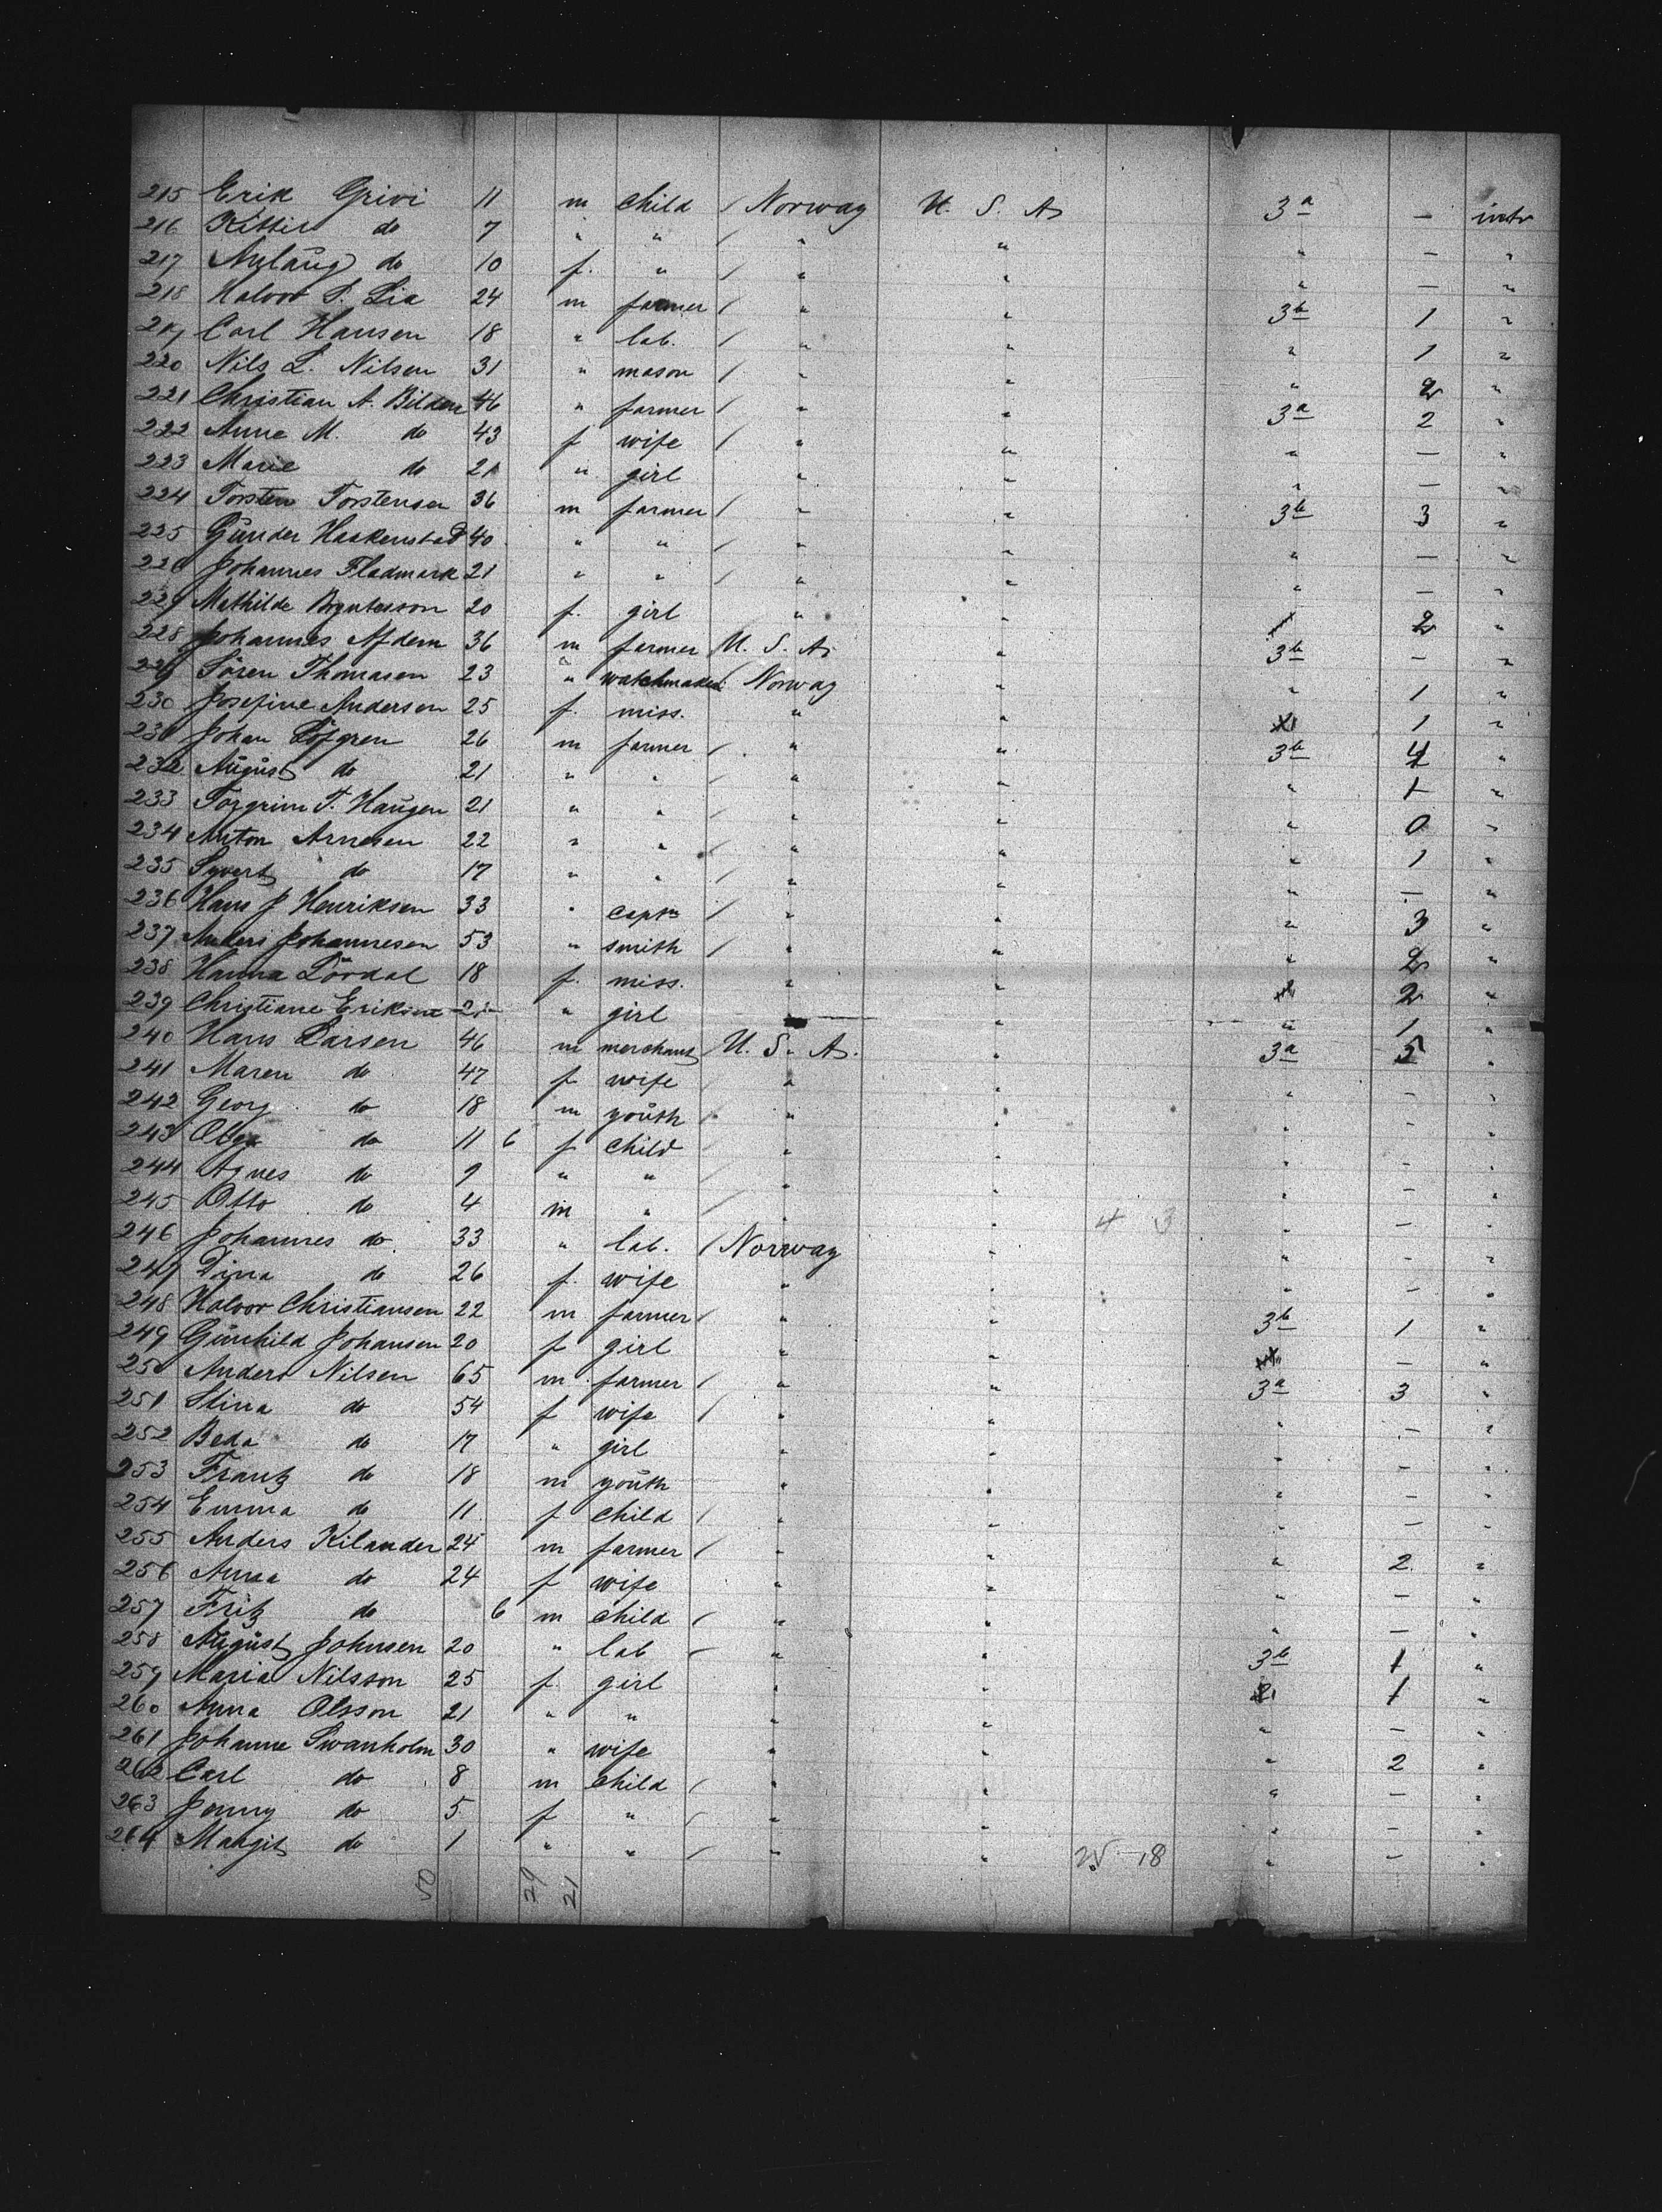 215 Erik Grivi 11 m child / Norway U. S. A. 3a — intr
216 Kittil do 7 " " / " " " — "
217 Anlaug do 10 f. " / " " " — "
218 Halvor P. Lia 24 m farmer / " " 3b 1 "
219 Carl Hansen 18 " lab. / " " " 1 "
220 Nils L. Nilsen 31 " mason / " " " 2 "
221 Christian A. Bilden 46 " farmer / " " 3a 2 "
222 Anne M. do 43 f wife / " " " — "
223 Marie do 21 " girl " " " — "
224 Torsten Torstensen 36 m farmer / " " 3b 3 "
225 Gunder Haakenstad 40 " " / " " " — "
226 Johannes Fladmark 21 " " / " " " — "
227 Mathilde 20 f. girl " " 2 "
228 Johannes Afdem 36 m farmer U. S. A. " 3b — "
229 Sören Thomasen 23 " watchmaker Norway " " 1 "
230 Josefine Andersen 25 f. miss. " " 1 "
231 Johan Löfgren 26 m farmer / " " 3b 4 "
232 August do 21 " " / " " " 1 "
233 Torgrim T. Haugen 21 " " / " " " 0 "
234 Anton Arnesen 22 " " / " " " 1 "
235 Syvert do 17 " " / " " " — "
236 Hans J Henriksen 33 " captn / " " " 3 "
237 Anders Johannesen 53 " smith / " " " 2 "
238 Hanna Lördal 18 f. miss. " " 2 "
239 Christiane " girl " " " 1 "
240 Hans Larsen 46 m merchant U. S. A. " 3a 5 "
241 Maren do 47 f wife / " " " — "
242 Georg do 18 m youth / " " " — "
243 Olga do 11 6 f child / " " " — "
244 Agnes do 9 " " / " " " — "
245 Otto do 4 m " / " " 4 3 " — "
246 Johannes do 33 " lab. / Norway " " — "
247 Dina do 26 f. wife " " " — "
248 Halvor Christiansen 22 m farmer / " " 3b 1 "
249 Gunhild Johansen 20 f girl " " — "
250 Anders Nilsen 65 m farmer / " " 3a 3 "
251 Stina do 54 f wife / " " " — "
252 Beda do 17 " girl " " " — "
253 Frantz do 18 m youth " " " — "
254 Emma do 11 f child / " " " — "
255 Anders Kilander 24 m farmer / " " " 2 "
256 Anna do 24 f wife " " " — "
257 Fritz do 6 m child / " " " — "
258 August Johnsen 20 " lab / " " 3b 1 "
259 Maria Nilsson 25 f girl " " 1 "
260 Anna Olsson 21 " " " " " — "
261 Johanne Swanholm 30 " wife " " " 2 "
262 Carl do 8 m child / " " " — "
263 Jenny do 5 f " / " " " — "
264 Margit do 1 " " / " " 25 – 18 " — "
50 29 21